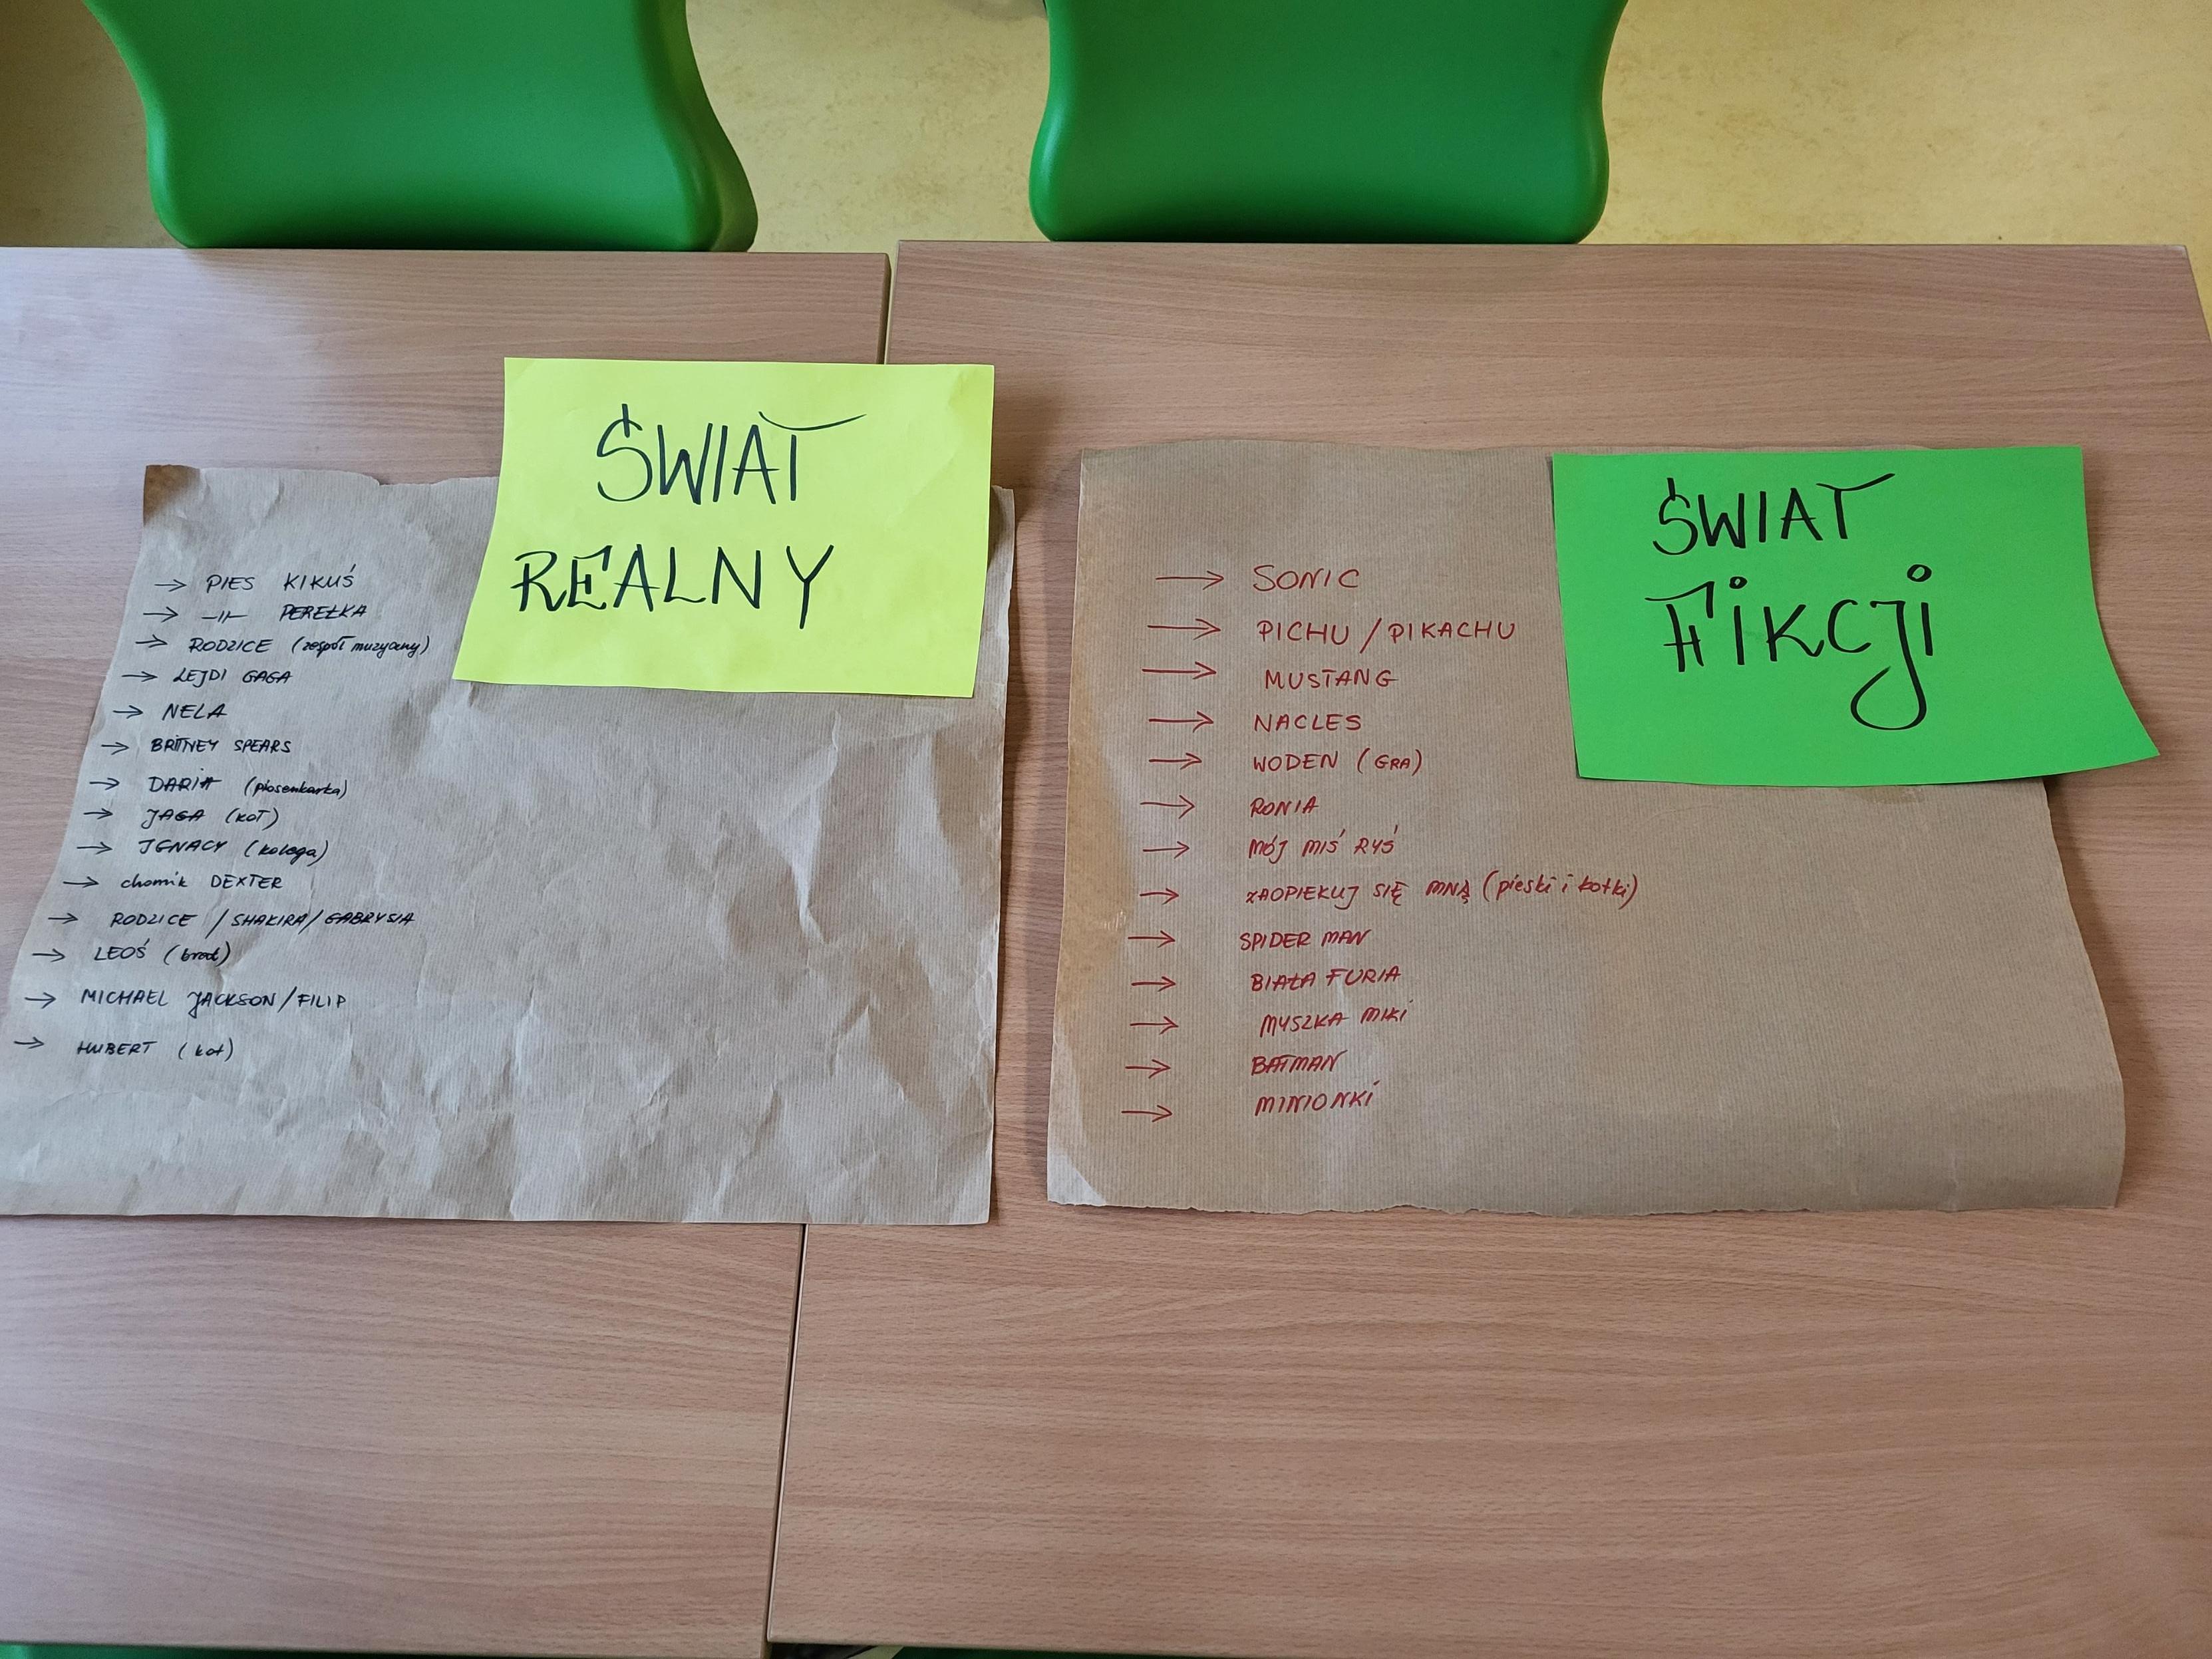 ŚWIAT
REALNY
→ PIES KIKUŚ
→ -||- PEREŁKA
→ RODZICE (zespół muzyczny)
→ LEJDI GAGA
→ NELA
→ BRITNEY SPEARS
→ DARIA (piosenkarka)
→ JAGA (KOT)
→ IGNACY (kolega)
→ chomik DEXTER
→ RODZICE / SHAKIRA / GABRYSIA
→ LEOŚ (brat)
→ MICHAEL JACKSON / FILIP
→ HUBERT (kot)
ŚWIAT
FIKCJI
→ SONIC
→ PICHU / PIKACHU
→ MUSTANG
→ NACLES
→ WODEN (GRA)
→ RONIA
→ MÓJ MIŚ RYŚ
→ ZAOPIEKUJ SIĘ MNĄ (pieski i kotki)
→ SPIDER MAN
→ BIAŁA FURIA
→ MYSZKA MIKI
→ BATMAN
→ MINIONKI